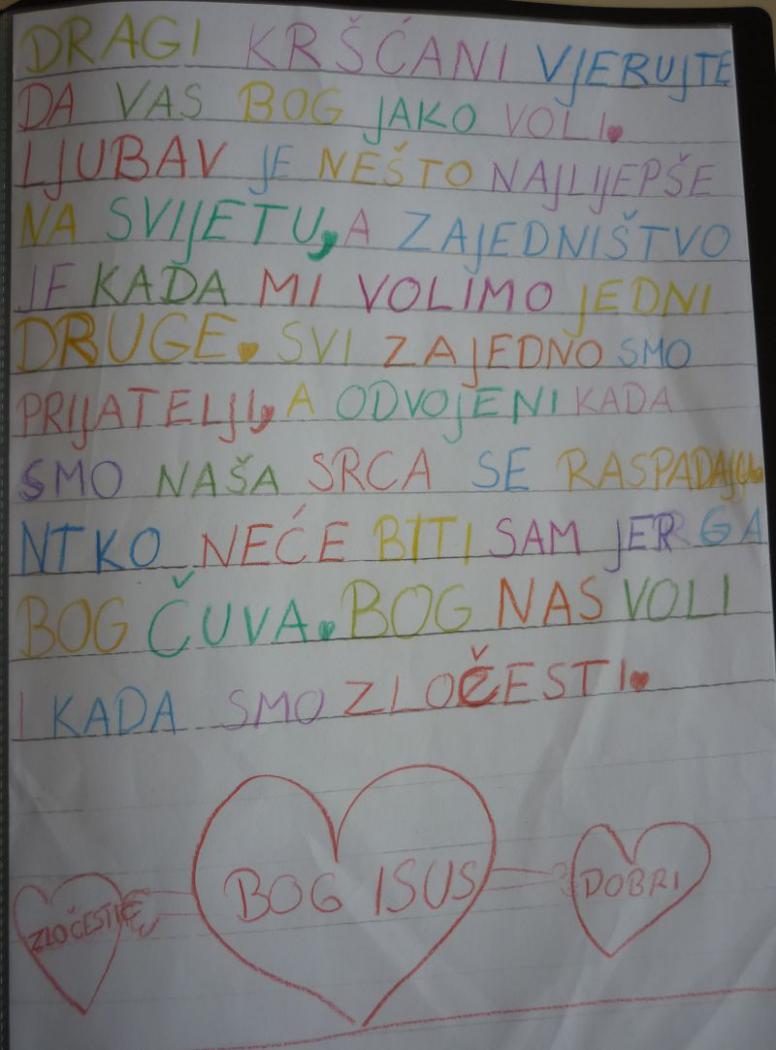 DRAGI KRŠĆANI VJERUJTE
DA VAS BOG JAKO VOLI.
LJUBAV JE NEŠTO NAJLIJEPŠE
NA SVIJETU, A ZAJEDNIŠTVO
JE KADA MI VOLIMO JEDNI
DRUGE. SVI ZAJEDNO SMO
PRIJATELJI, A ODVOJENI KADA
SMO NAŠA SRCA SE RASPADAJU.
NITKO NEĆE BITI SAM JER GA
BOG ČUVA. BOG NAS VOLI
I KADA SMO ZLOČESTI.
ZLOČESTI
BOG ISUS
DOBRI